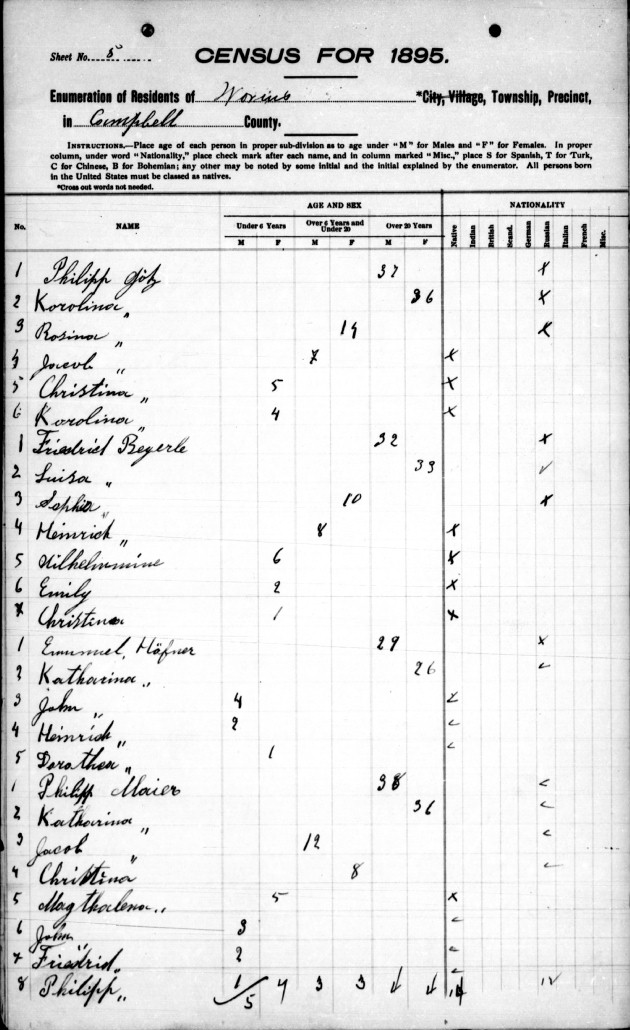 Sheet No. 5
CENSUS FOR 1895.
Enumeration of Residents of Worms *City, Village, Township, Precinct,
in Campbell County.
INSTRUCTIONS.—Place age of each person in proper sub-division as to age under "M" for Males and "F" for Females. In proper
column, under word "Nationality," place check mark after each name, and in column marked "Misc.," place S for Spanish, T for Turk,
C for Chinese, B for Bohemian; any other may be noted by some initial and the initial explained by the enumerator. All persons born
in the United States must be classed as natives.
*Cross out words not needed.
AGE AND SEX NATIONALITY
No. NAME Under 6 Years Over 6 Years and Under 20 Over 20 Years Native Indian British Scand. German Russian Italian French Misc.
M F M F M F
1 Philipp Götz 37 x
2 Korolina " 36 x
3 Rosina " 14 x
4 Jacob " 7 x
5 Christina " 5 x
6 Korolina " 4 x
1 Friedrich Beyerle 32 x
2 Luisa " 33 ✓
3 Sophia " 10 x
4 Heinrich " 8 x
5 Wilhelmmine 6 x
6 Emily 2 x
7 Christina 1 x
1 Emanuel Höfner 29 x
2 Katharina " 26 ✓
3 John " 4 ✓
4 Heinrich " 2 ✓
5 Dorothea " 1 ✓
1 Philipp Maier 38 ✓
2 Katharina " 36 ✓
3 Jacob " 12 ✓
4 Christina 8 ✓
5 Magthalena " 5 x
6 John " 3 ✓
7 Friedrich " 2 ✓
8 Philipp " 1 ✓
5 7 3 3 4 4